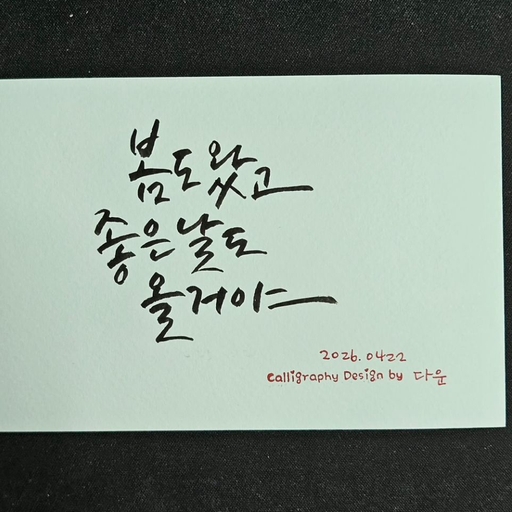 봄도 왔고
좋은 날도
올거야
2026. 0422
Calligraphy Design by 다운